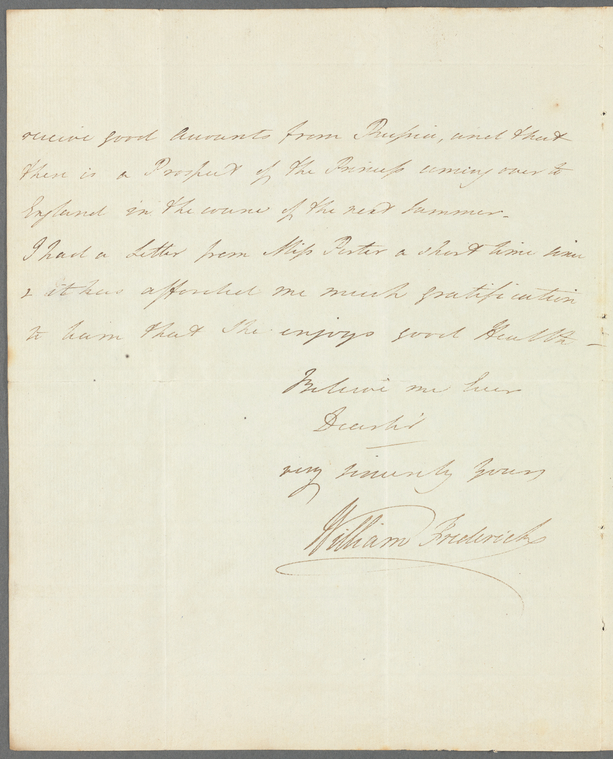 receive good accounts from Prussia, and that
there is a Prospect of the Princess coming over to
England in the course of the next Summer_
I had a Letter from Miss Porter a short time since
& it has afforded me much gratification
to learn that She enjoys good Health_
Believe me Ever
Dear Sir
very sincerely Yours
William Frederick